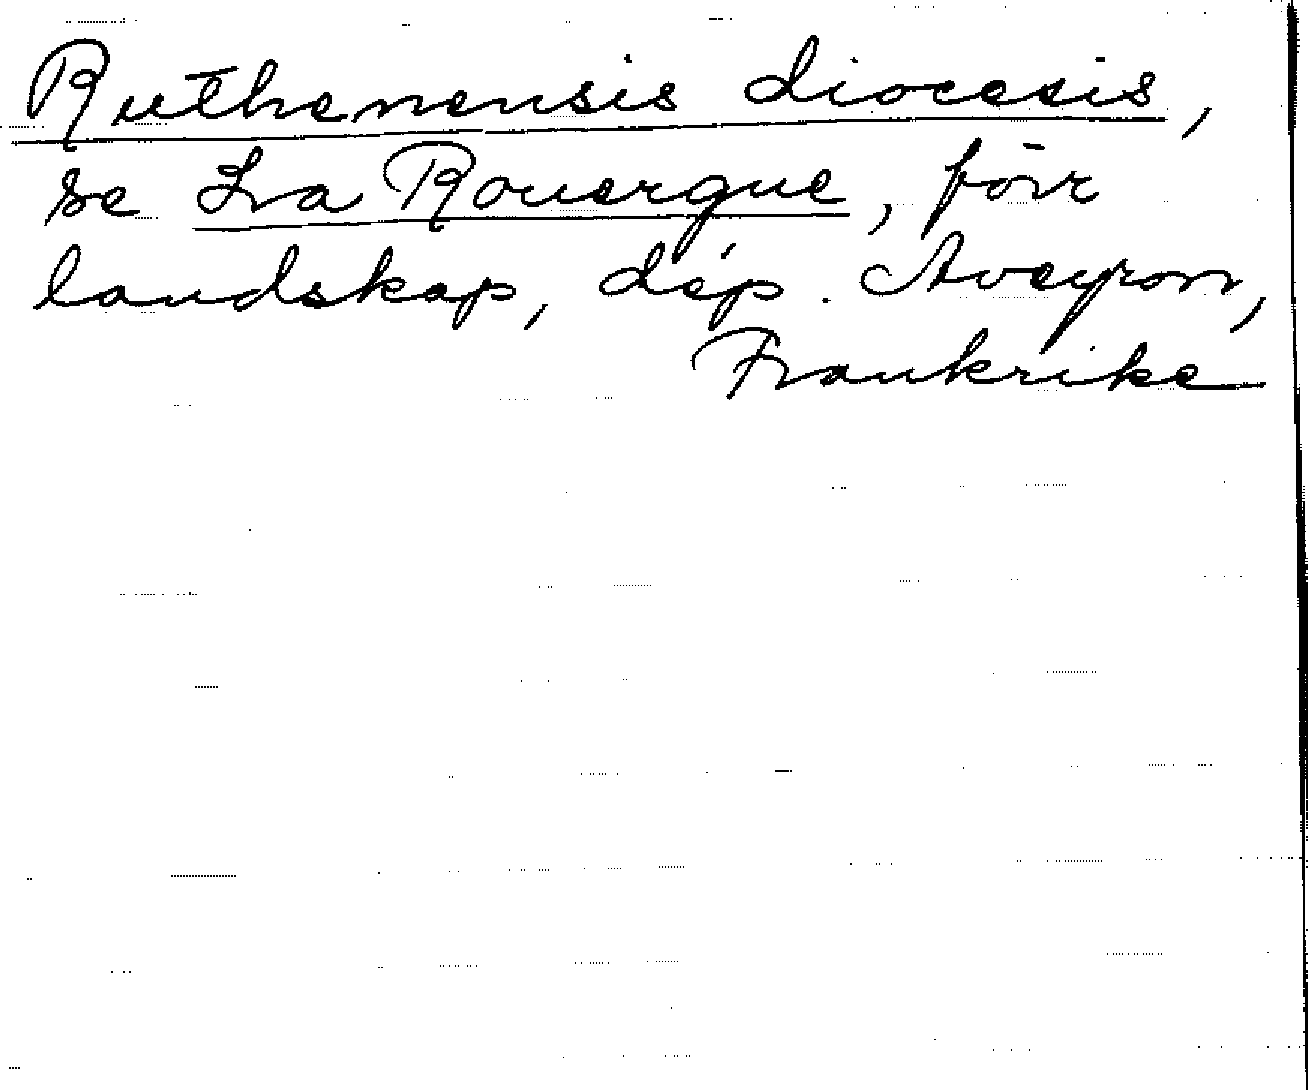 Ruthenensis diocesis,
se La Rouergue, förr
landskap, dép. Aveyron,
Frankrike